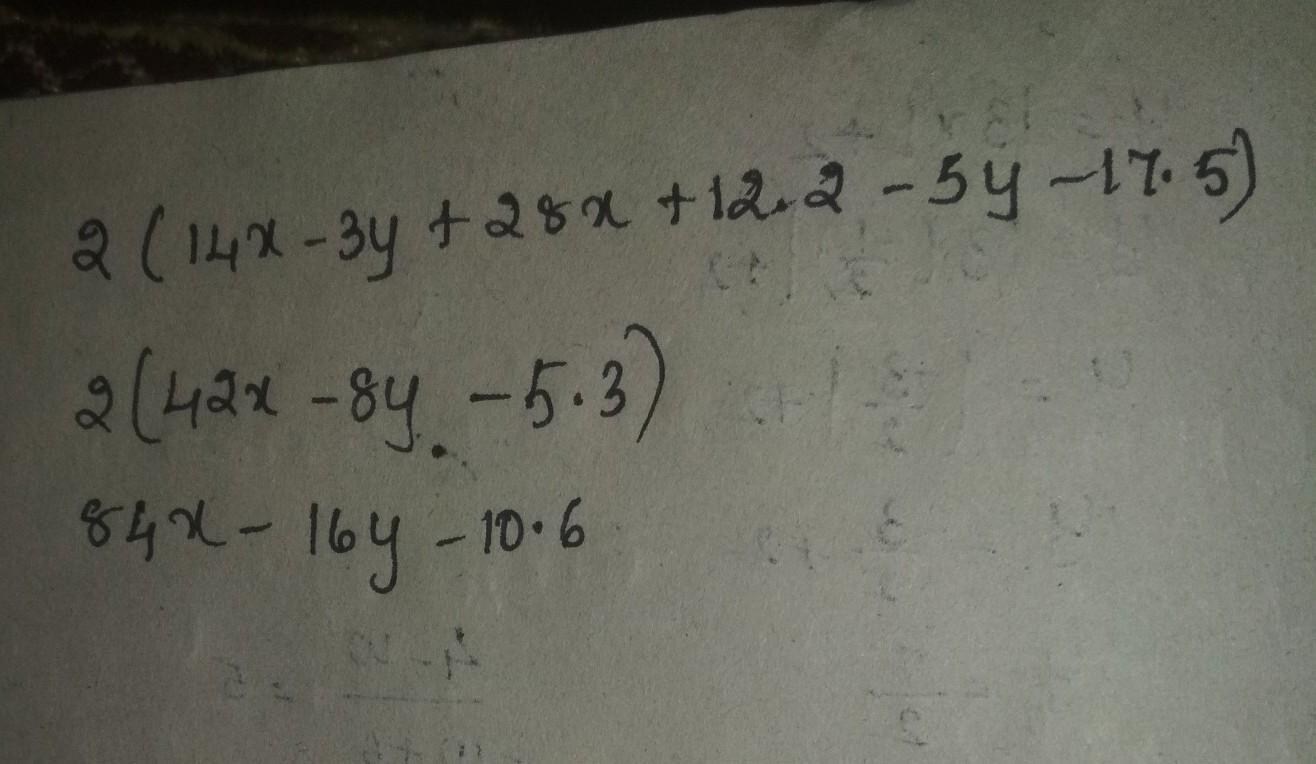 2 (14x - 3y + 28x + 12.2 - 5y - 17.5)
2 (42x - 8y - 5.3)
84x - 16y - 10.6